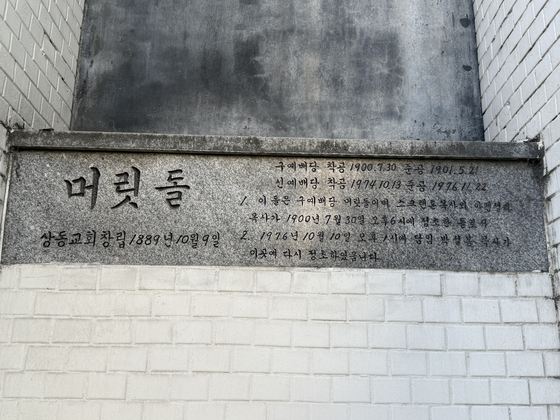 머릿돌
상동교회창립 1889년 10월 9일
구예배당 착공 1900.7.30 준공 1901.5.21
신예배당 착공 1974.10.13 준공 1976.11.22
1. 이 돌은 구예배당 머릿돌이며 스크랜톤목사와
목사가 1900년 7월 30일 오후6시에 정초한 돌로서
2. 1976년 10월 10일 오후 1시에 담임 박설봉 목사가
이곳에 다시 정초하였읍니다